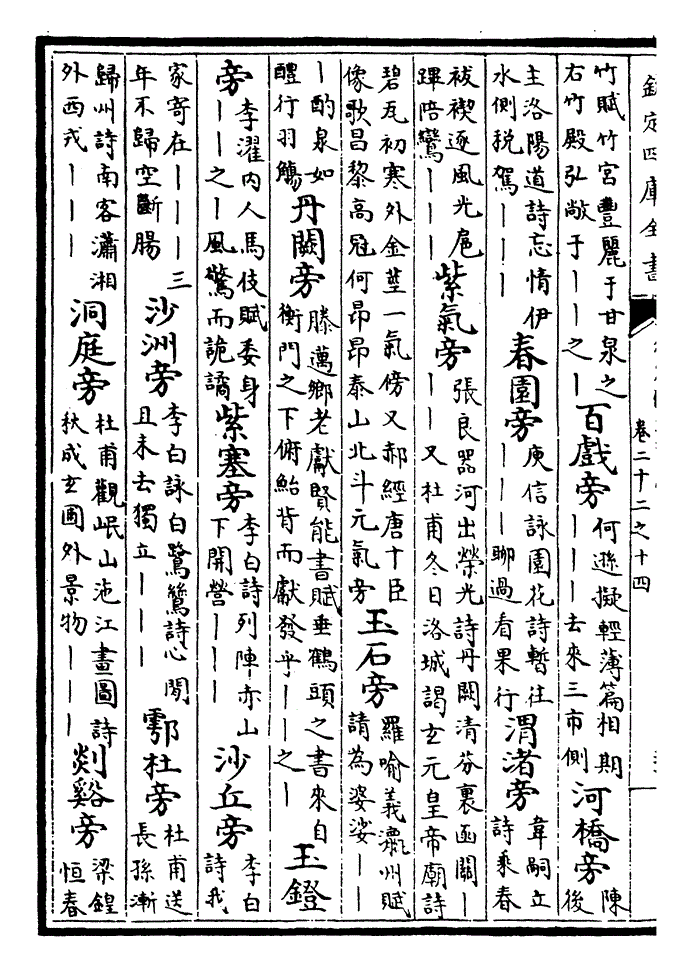 欽定四庫全書
卷二十二之十四
竹賦竹宮豐麗于甘泉之右竹殿弘敞于丨丨之丨百戲旁何遜擬輕薄篇相期丨丨丨去來三市側河橋旁陳後
主洛陽道詩忘情伊水側稅駕丨丨丨春園旁庾信詠園花詩暫往丨丨丨聊過看果行渭渚旁韋嗣立詩乘春
祓禊逐風光扈蹕陪鸞丨丨丨紫氣旁張良器河出榮光詩丹闕清芬裏函關丨丨丨又杜甫冬日洛城謁玄元皇帝廟詩
碧瓦初寒外金莖一氣傍又郝經唐十臣像歌昌黎高冠何昂昂泰山北斗元氣旁玉石旁羅喻義瀛州賦請為婆娑丨丨
丨酌泉如醴行羽觴丹闕旁滕邁鄉老獻賢能書賦垂鶴頭之書來自衡門之下俯鮐背而獻發乎丨丨之丨玉鐙
旁李濯內人馬伎賦委身丨丨之丨風驚而詭譎紫塞旁李白詩列陣赤山下開營丨丨丨沙丘旁李白詩我
家寄在丨丨丨三年不歸空斷腸沙洲旁李白詠白鷺鷥詩心閒且未去獨立丨丨丨鄠杜旁杜甫送長孫漸
歸州詩南客瀟湘外西戎丨丨丨洞庭旁杜甫觀岷山沲江畫圖詩秋成玄圃外景物丨丨丨剡谿旁梁鍠恒春